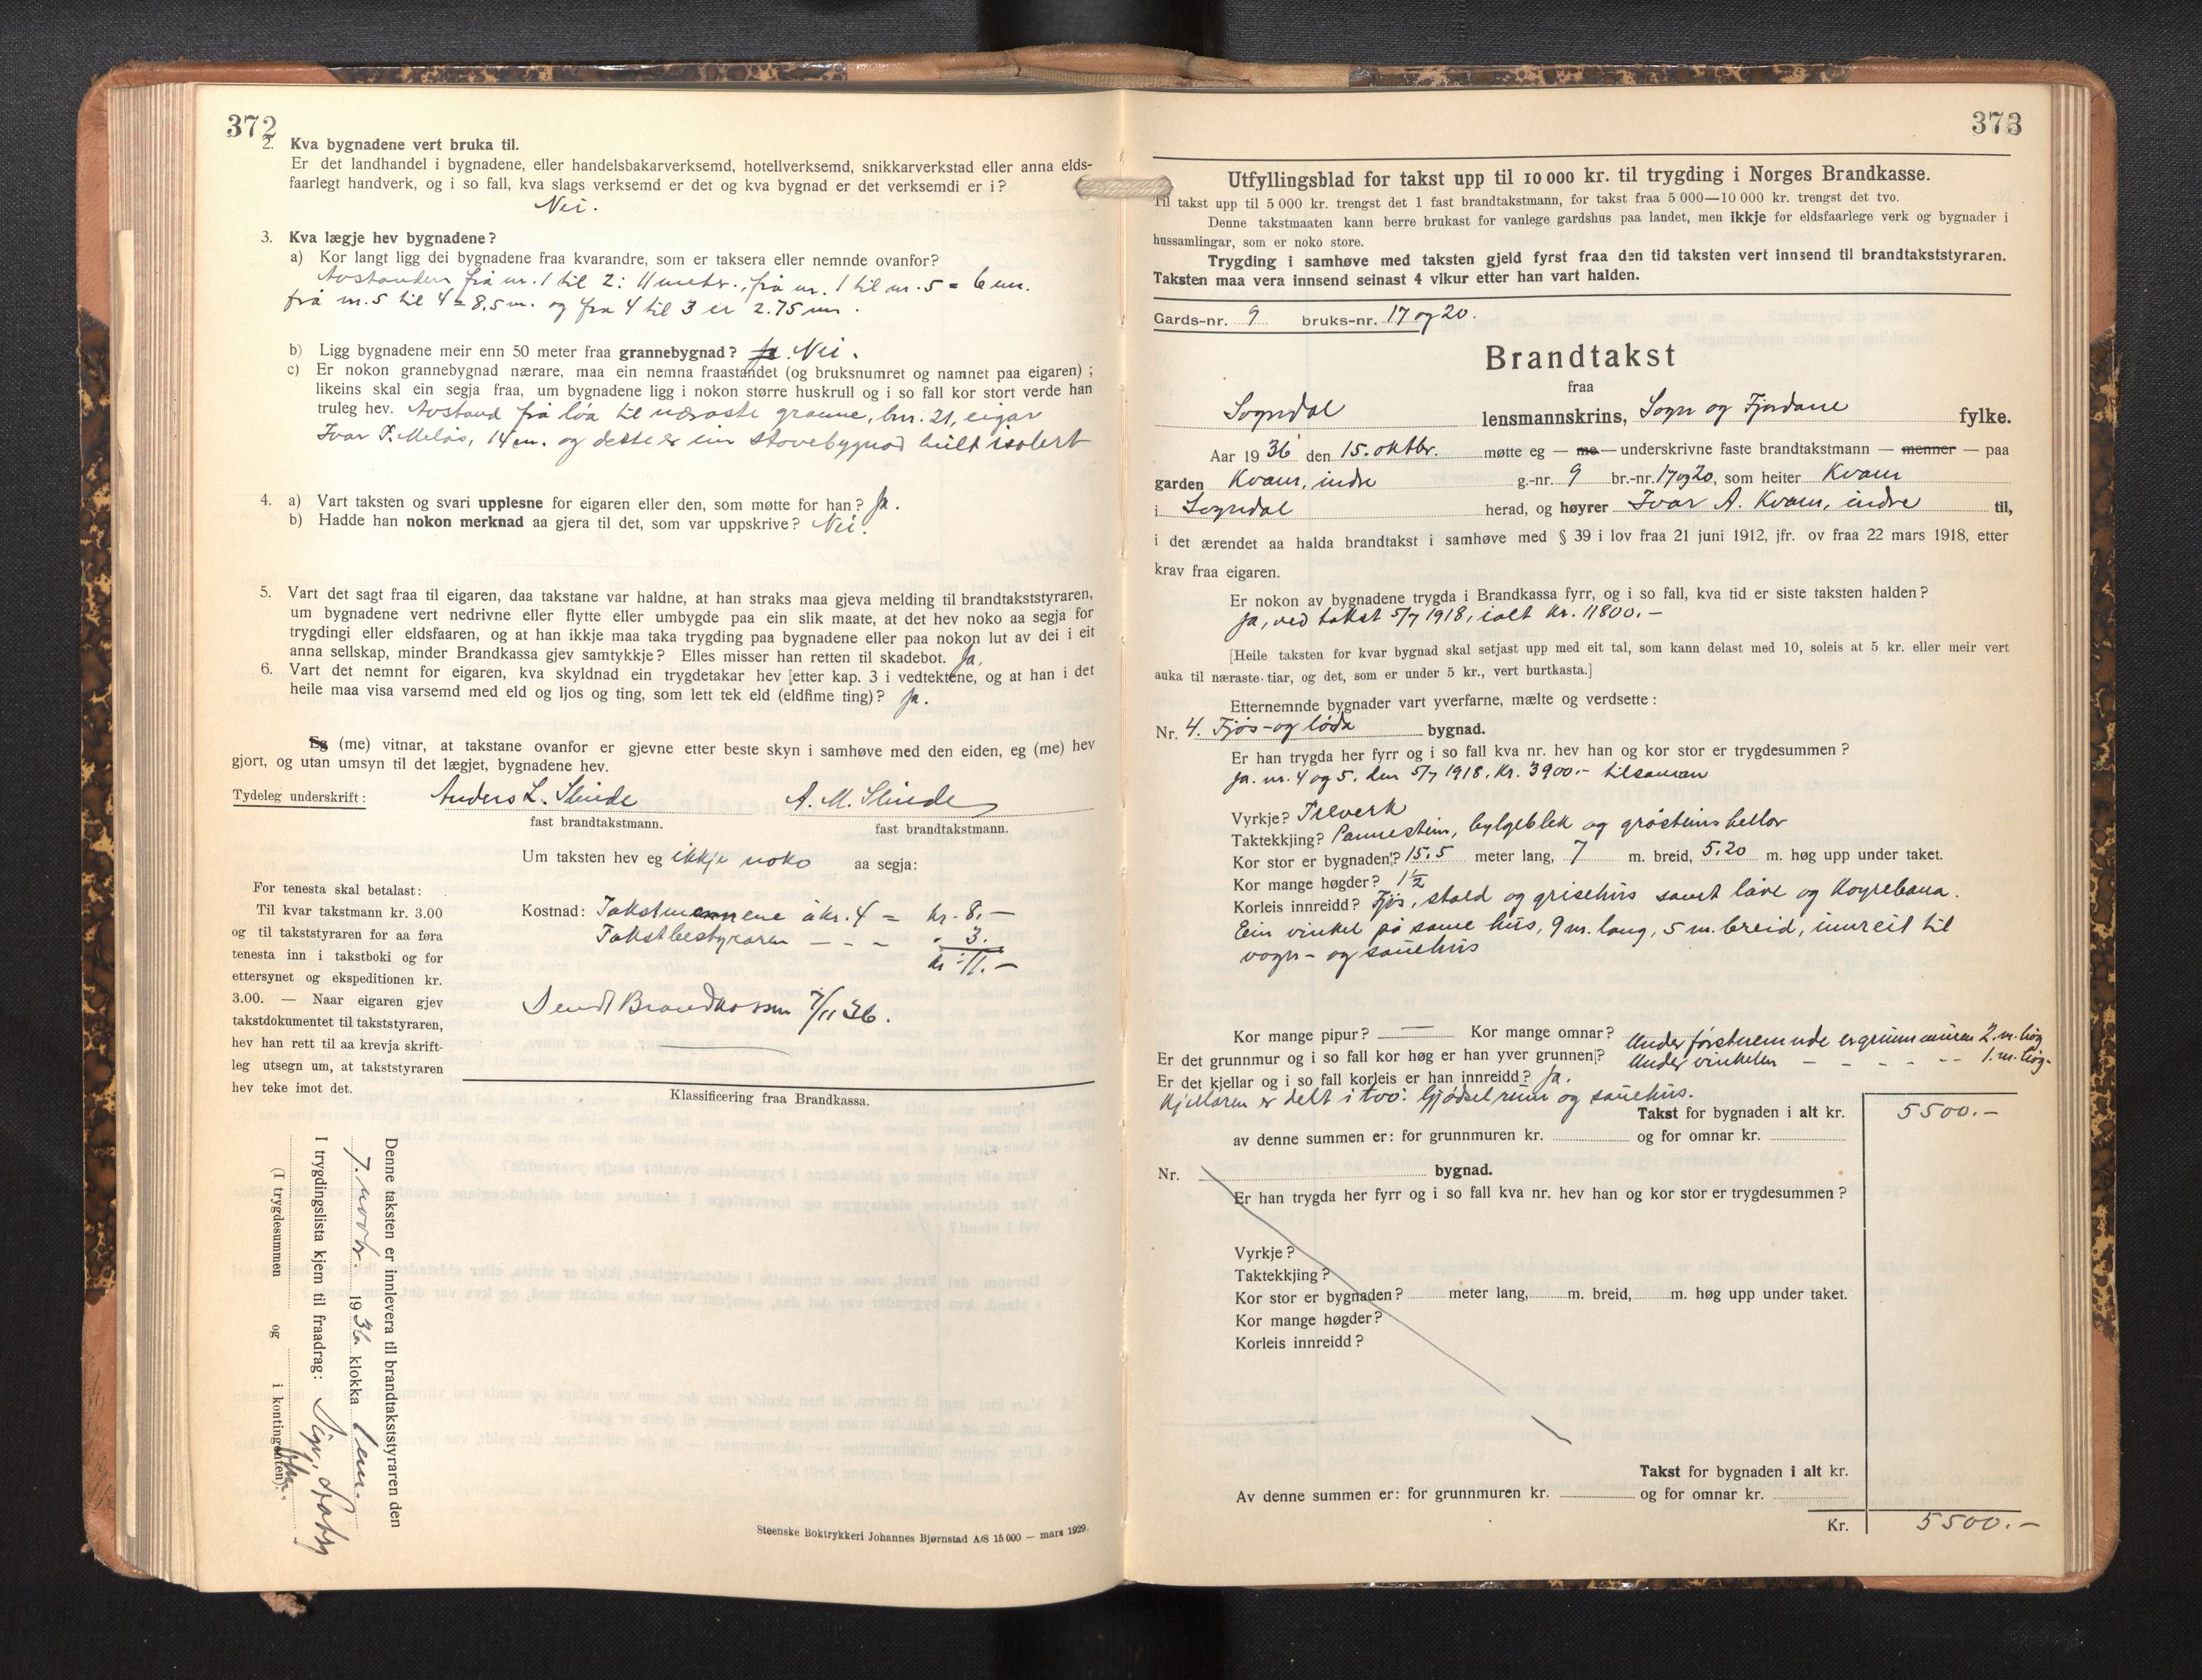 372
2. Kva bygnadene vert bruka til.
Er det landhandel i bygnadene, eller handelsbakarverksemd, hotellverksemd, snikkarverkstad eller anna elds-
faarlegt handverk, og i so fall, kva slags verksemd er det og kva bygnad er det verksemdi er i?
Nei.
3. Kva lægje hev bygnadene?
a) Kor langt ligg dei bygnadene fraa kvarandre, som er taksera eller nemnde ovanfor?
Avstanden frå nr. 1 til 2: 11 meter., frå nr. 1 til nr. 5 = 6 m.
frå nr. 5 til 4 = 8,5 m. og fra 4 til 3 er 2.75 m.
b) Ligg bygnadene meir enn 50 meter fraa grannebygnad? Ja. Nei.
c) Er nokon grannebygnad nærare, maa ein nemna fraastandet (og bruksnumret og namnet paa eigaren);
likeins skal ein segja fraa, um bygnadene ligg i nokon større huskrull og i so fall kor stort verde han
truleg hev. Avstand frå løa til næraste granne, bnr. 21, eigar
Ivar P. Melås, 14 m. og dette er ein stovebygnad heilt isolert
4. a) Vart taksten og svari upplesne for eigaren eller den, som møtte for han? Ja.
b) Hadde han nokon merknad aa gjera til det, som var uppskrive? Nei.
5. Vart det sagt fraa til eigaren, daa takstane var haldne, at han straks maa gjeva melding til brandtakststyraren,
um bygnadene vert nedrivne eller flytte eller umbygde paa ein slik maate, at det hev noko aa segja for
trygdingi eller eldsfaaren, og at han ikkje maa taka trygding paa bygnadene eller paa nokon lut av dei i eit
anna sellskap, minder Brandkassa gjev samtykkje? Elles misser han retten til skadebot. Ja.
6. Vart det nemnt for eigaren, kva skyldnad ein trygdetakar hev [etter kap. 3 i vedtektene, og at han i det
heile maa visa varsemd med eld og ljos og ting, som lett tek eld (eldfime ting)? Ja.
Eg (me) vitnar, at takstane ovanfor er gjevne etter beste skyn i samhøve med den eiden, eg (me) hev
gjort, og utan umsyn til det lægjet, bygnadene hev.
Tydeleg underskrift: Anders L. Slinde A. M. Slinde
fast brandtakstmann. fast brandtakstmann.
Um taksten hev eg ikkje noko aa segja:
For tenesta skal betalast:
Til kvar takstmann kr. 3.00
og til takststyraren for aa føra
tenesta inn i takstboki og for
ettersynet og ekspeditionen kr.
3.00. — Naar eigaren gjev
takstdokumentet til takststyraren,
hev han rett til aa krevja skrift-
leg utsegn um, at takststyraren
hev teke imot det.
Kostnad: Takstmennene à kr. 4 = kr. 8.—
Takstbestyraren — - - " 3.
kr. 11.—
Sendt Brandkassen 7/11 36.
Klassificering fraa Brandkassa.
Denne taksten er innlevera til brandtakststyraren den
7. novbr. 1936. klokka
I trygdingslista kjem til fraadrag:
(I trygdesummen og i kontingenten).
Steenske Boktrykkeri Johannes Bjørnstad A/S 15 000 — mars 1929.
373
Utfyllingsblad for takst upp til 10 000 kr. til trygding i Norges Brandkasse.
Til takst upp til 5 000 kr. trengst det 1 fast brandtakstmann, for takst fraa 5 000—10 000 kr. trengst det tvo.
Denne takstmaaten kann berre brukast for vanlege gardshus paa landet, men ikkje for eldsfaarlege verk og bygnader i
hussamlingar, som er noko store.
Trygding i samhøve med taksten gjeld fyrst fraa den tid taksten vert innsend til brandtakststyraren.
Taksten maa vera innsend seinast 4 vikur etter han vart halden.
Gards-nr. 9 bruks-nr. 17 og 20.
Brandtakst
fraa
Sogndal lensmannskrins, Sogn og Fjordane fylke.
Aar 1936 den 15. oktbr. møtte eg — me — underskrivne faste brandtakstmann — menner — paa
garden Kvam, indre g.-nr. 9 br.-nr. 17 og 20, som heiter Kvam
i Sogndal herad, og høyrer Ivar A. Kvam, indre til,
i det ærendet aa halda brandtakst i samhøve med § 39 i lov fraa 21 juni 1912, jfr. ov fraa 22 mars 1918, etter
krav fraa eigaren.
Er nokon av bygnadene trygda i Brandkassa fyrr, og i so fall, kva tid er siste taksten halden?
Ja, ved takst 5/7 1918, ialt kr. 11800.—
[Heile taksten for kvar bygnad skal setjast upp med eit tal, som kann delast med 10, soleis at 5 kr. eller meir vert
auka til næraste tiar, og det, som er under 5 kr., vert burtkasta.]
Etternemnde bygnader vart yverfarne, mælte og verdsette:
Nr. 4. Fjøs- og løda bygnad.
Er han trygda her fyrr og i so fall kva nr. hev han og kor stor er trygdesummen?
Ja. nr. 4 og 5. den 5/7 1918. kr. 3900.— tilsaman
Vyrkje? Treverk
Taktekkjing? Pannestein, bylgeblek og gråsteinshellor
Kor stor er bygnaden? 15.5 meter lang, 7 m. breid, 5.20 m. høg upp under taket.
Kor mange høgder? 1½
Korleis innreidd? Fjøs, stald og grisehus samt låve og køyrebana.
Ein vinkel på same hus, 9 m. lang, 5 m. breid, innreit til
vogn- og sauehus
Kor mange pipur? — Kor mange omnar?
Er det grunnmur og i so fall kor høg er han yver grunnen? Under førstnemnde er grunnmuren 2. m. høg
Under vinkelen - - - - - 1. m. høg.
Er det kjellar og i so fall korleis er han innreidd? Ja.
Kjellaren er delt i tvo: Gjødselrum og sauehus.
Takst for bygnaden i alt kr. 5500.—
av denne summen er: for grunnmuren kr. og for omnar kr.
Nr. bygnad.
Er han trygda her fyrr og i so fall kva nr. hev han og kor stor er trygdesummen?
Vyrkje?
Taktekkjing?
Kor stor er bygnaden? meter lang, m. breid, m. høg upp under taket.
Kor mange høgder?
Korleis innreidd?
Takst for bygnaden i alt kr.
Av denne summen er: for grunnmuren kr. og for omnar kr.
Kr. 5500.—